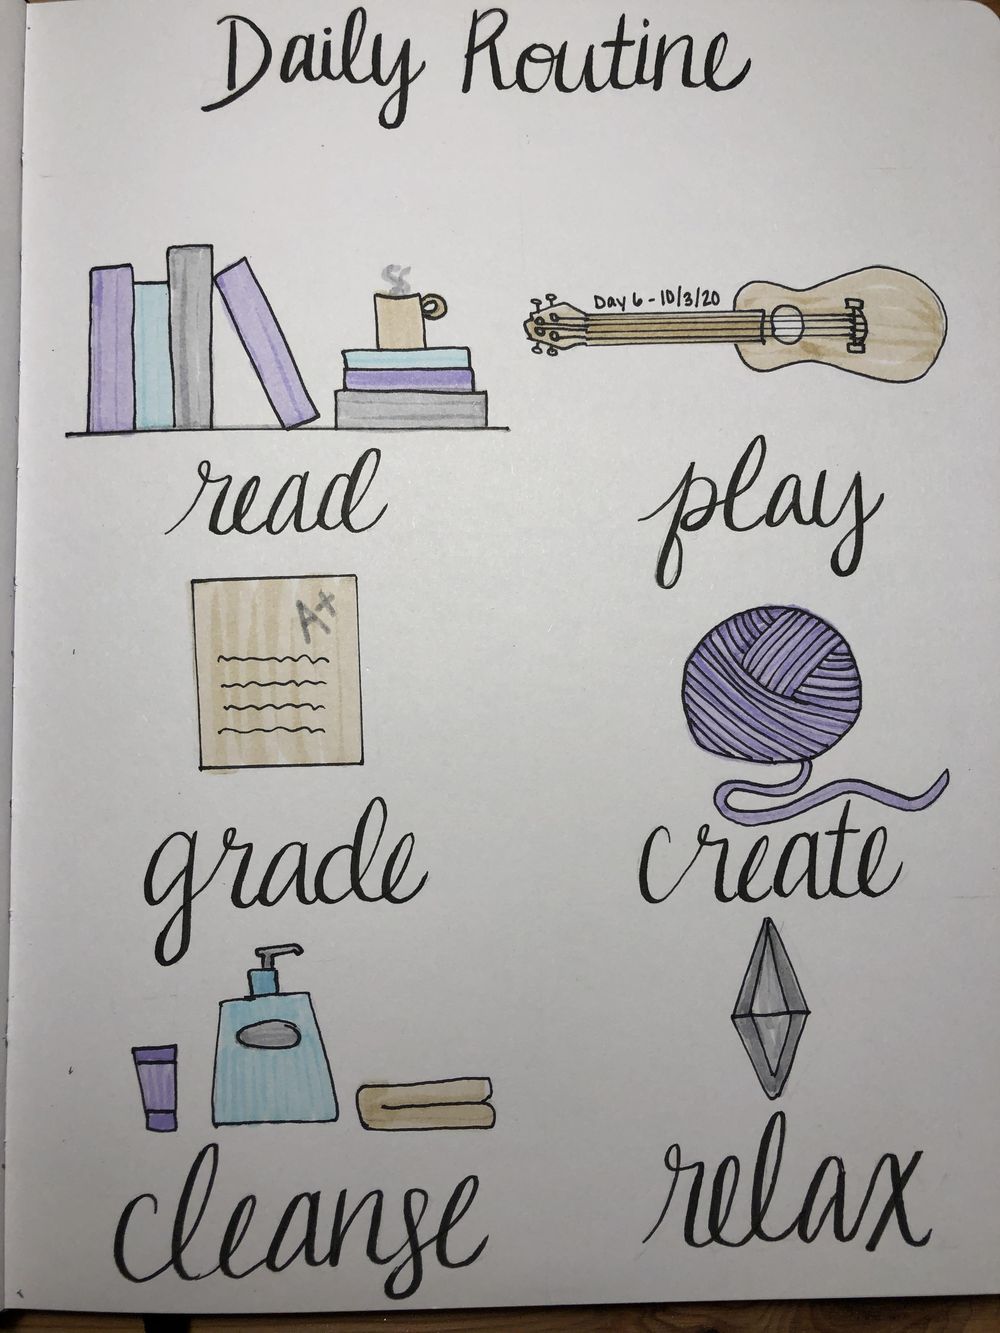 Daily Routine
Day 6 - 10/3/20
read
play
A+
grade
create
cleanse
relax